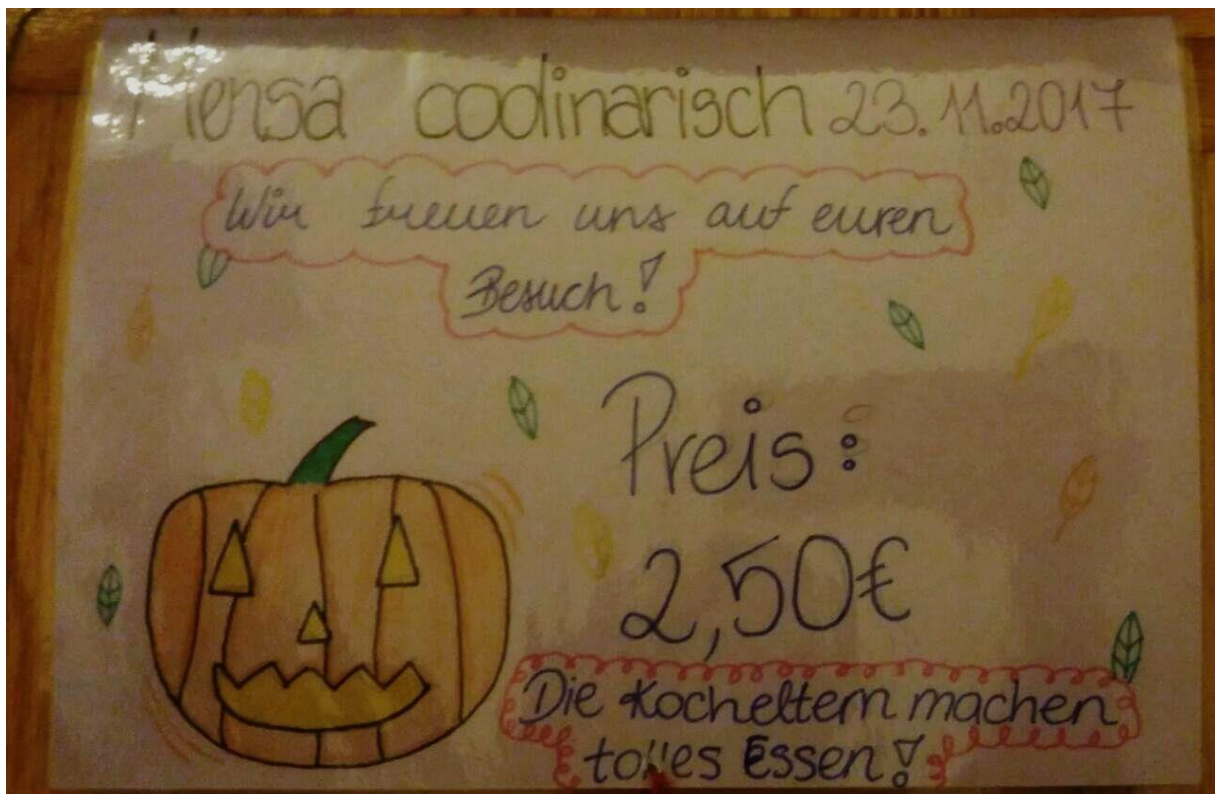 Mensa coolinarisch 23.11.2017
Wir freuen uns auf euren
Besuch!
Preis:
2,50€
Die Kocheltern machen
tolles Essen!